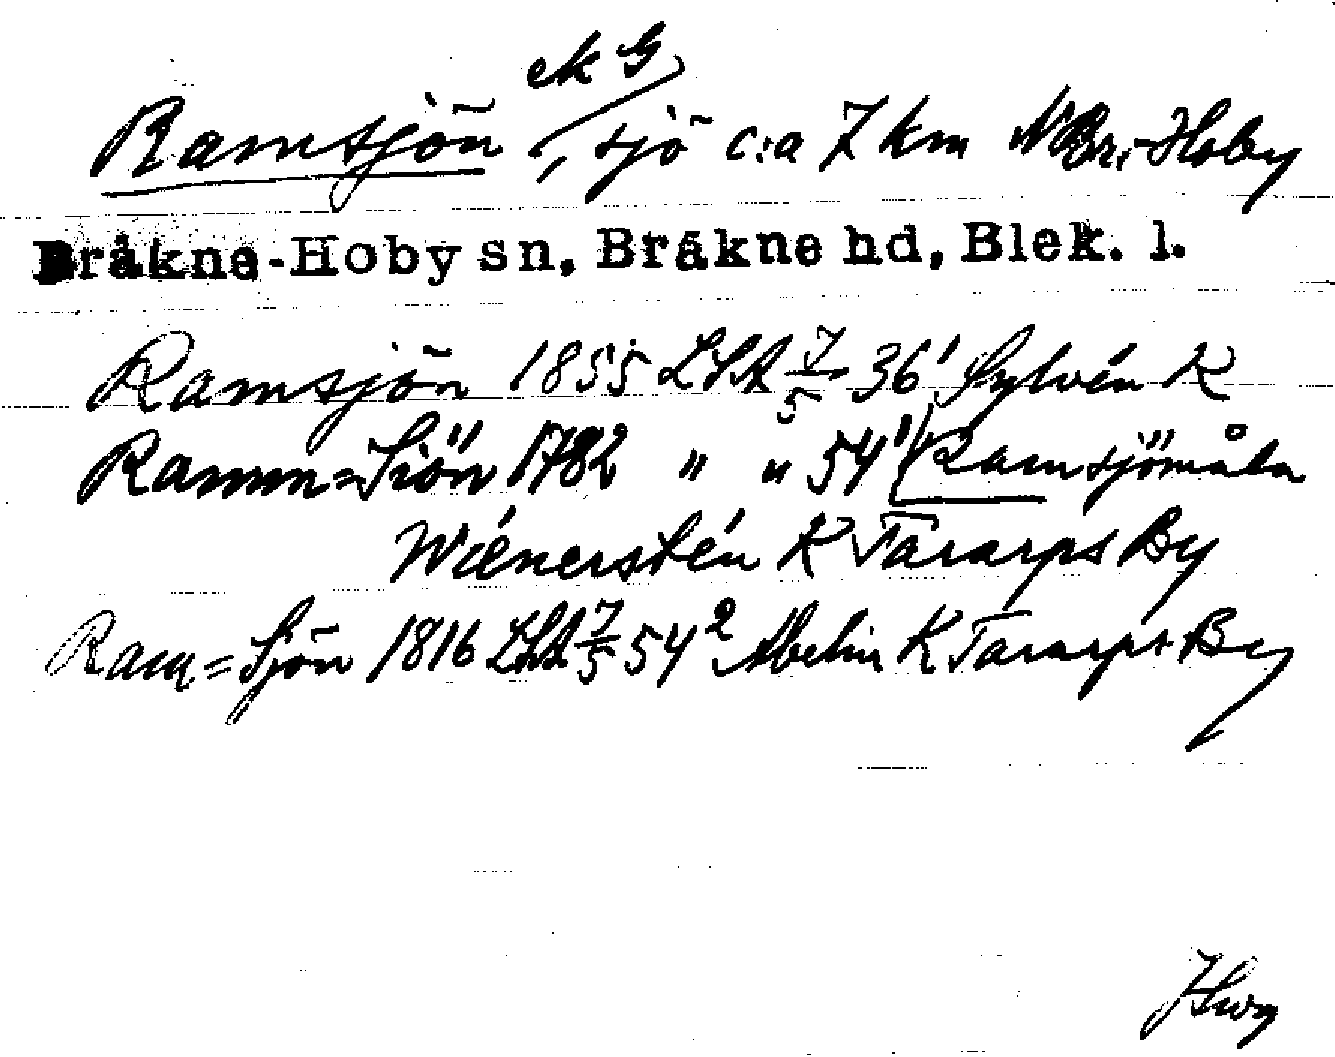 ek G
Ramsjön, sjö c:a 7 km N Br.-Hoby
Bräkne-Hoby sn, Bräkne hd, Blek. l.
Ramsjön 1855 LSA 7/5 36¹ Sylvén K
Ramm=Siön 1782 " " 54¹ (Ramsjömåla
Wiénerstén K Tararps By
Ram=Sjön 1816 LSA 7/5 54² Abelin K Tararps By